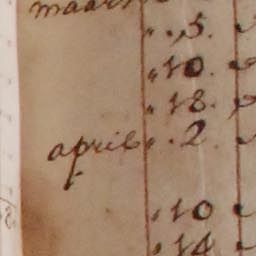 maart
„ 5.
„ 10.
„ 18.
april „ 2.
„ 10
„ 14